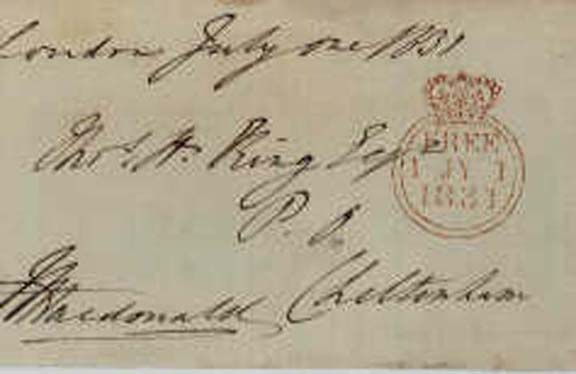 London July one 1831
FREE
1 JY 1
1831
Thos. W. King Esqre
P. O.
Cheltenham
Macdonald